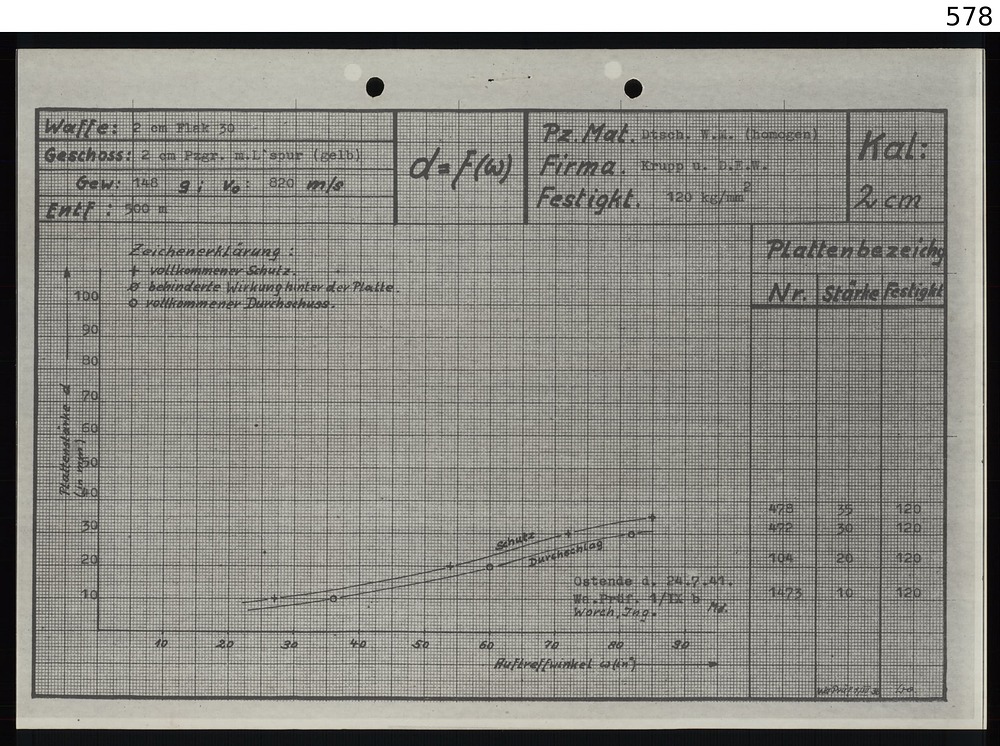 578
Waffe: 2 cm Flak 30
Geschoss: 2 cm Pzgr. m.L'spur (gelb)
Gew: 148 g; Vo: 820 m/s
Entf: 500 m
d = f(ω)
Pz.Mat. Dtsch. W.M. (homogen)
Firma. Krupp u. D.E.W.
Festigkt. 120 kg/mm²
Kal:
2 cm
Zeichenerklärung:
+ vollkommener Schutz.
ø behinderte Wirkung hinter der Platte.
o vollkommener Durchschuss.
Plattenbezeichg
Nr. Stärke Festigkt
Plattenstärke d
(in mm)
100
90
80
70
60
50
40
30
20
10
Schutz
Durchschlag
478 35 120
472 30 120
104 20 120
1473 10 120
Ostende d. 24.7.41.
Wa.Prüf. 1/IX b
Worch, Ing.
10 20 30 40 50 60 70 80 90
Auftreffwinkel ω (in °)